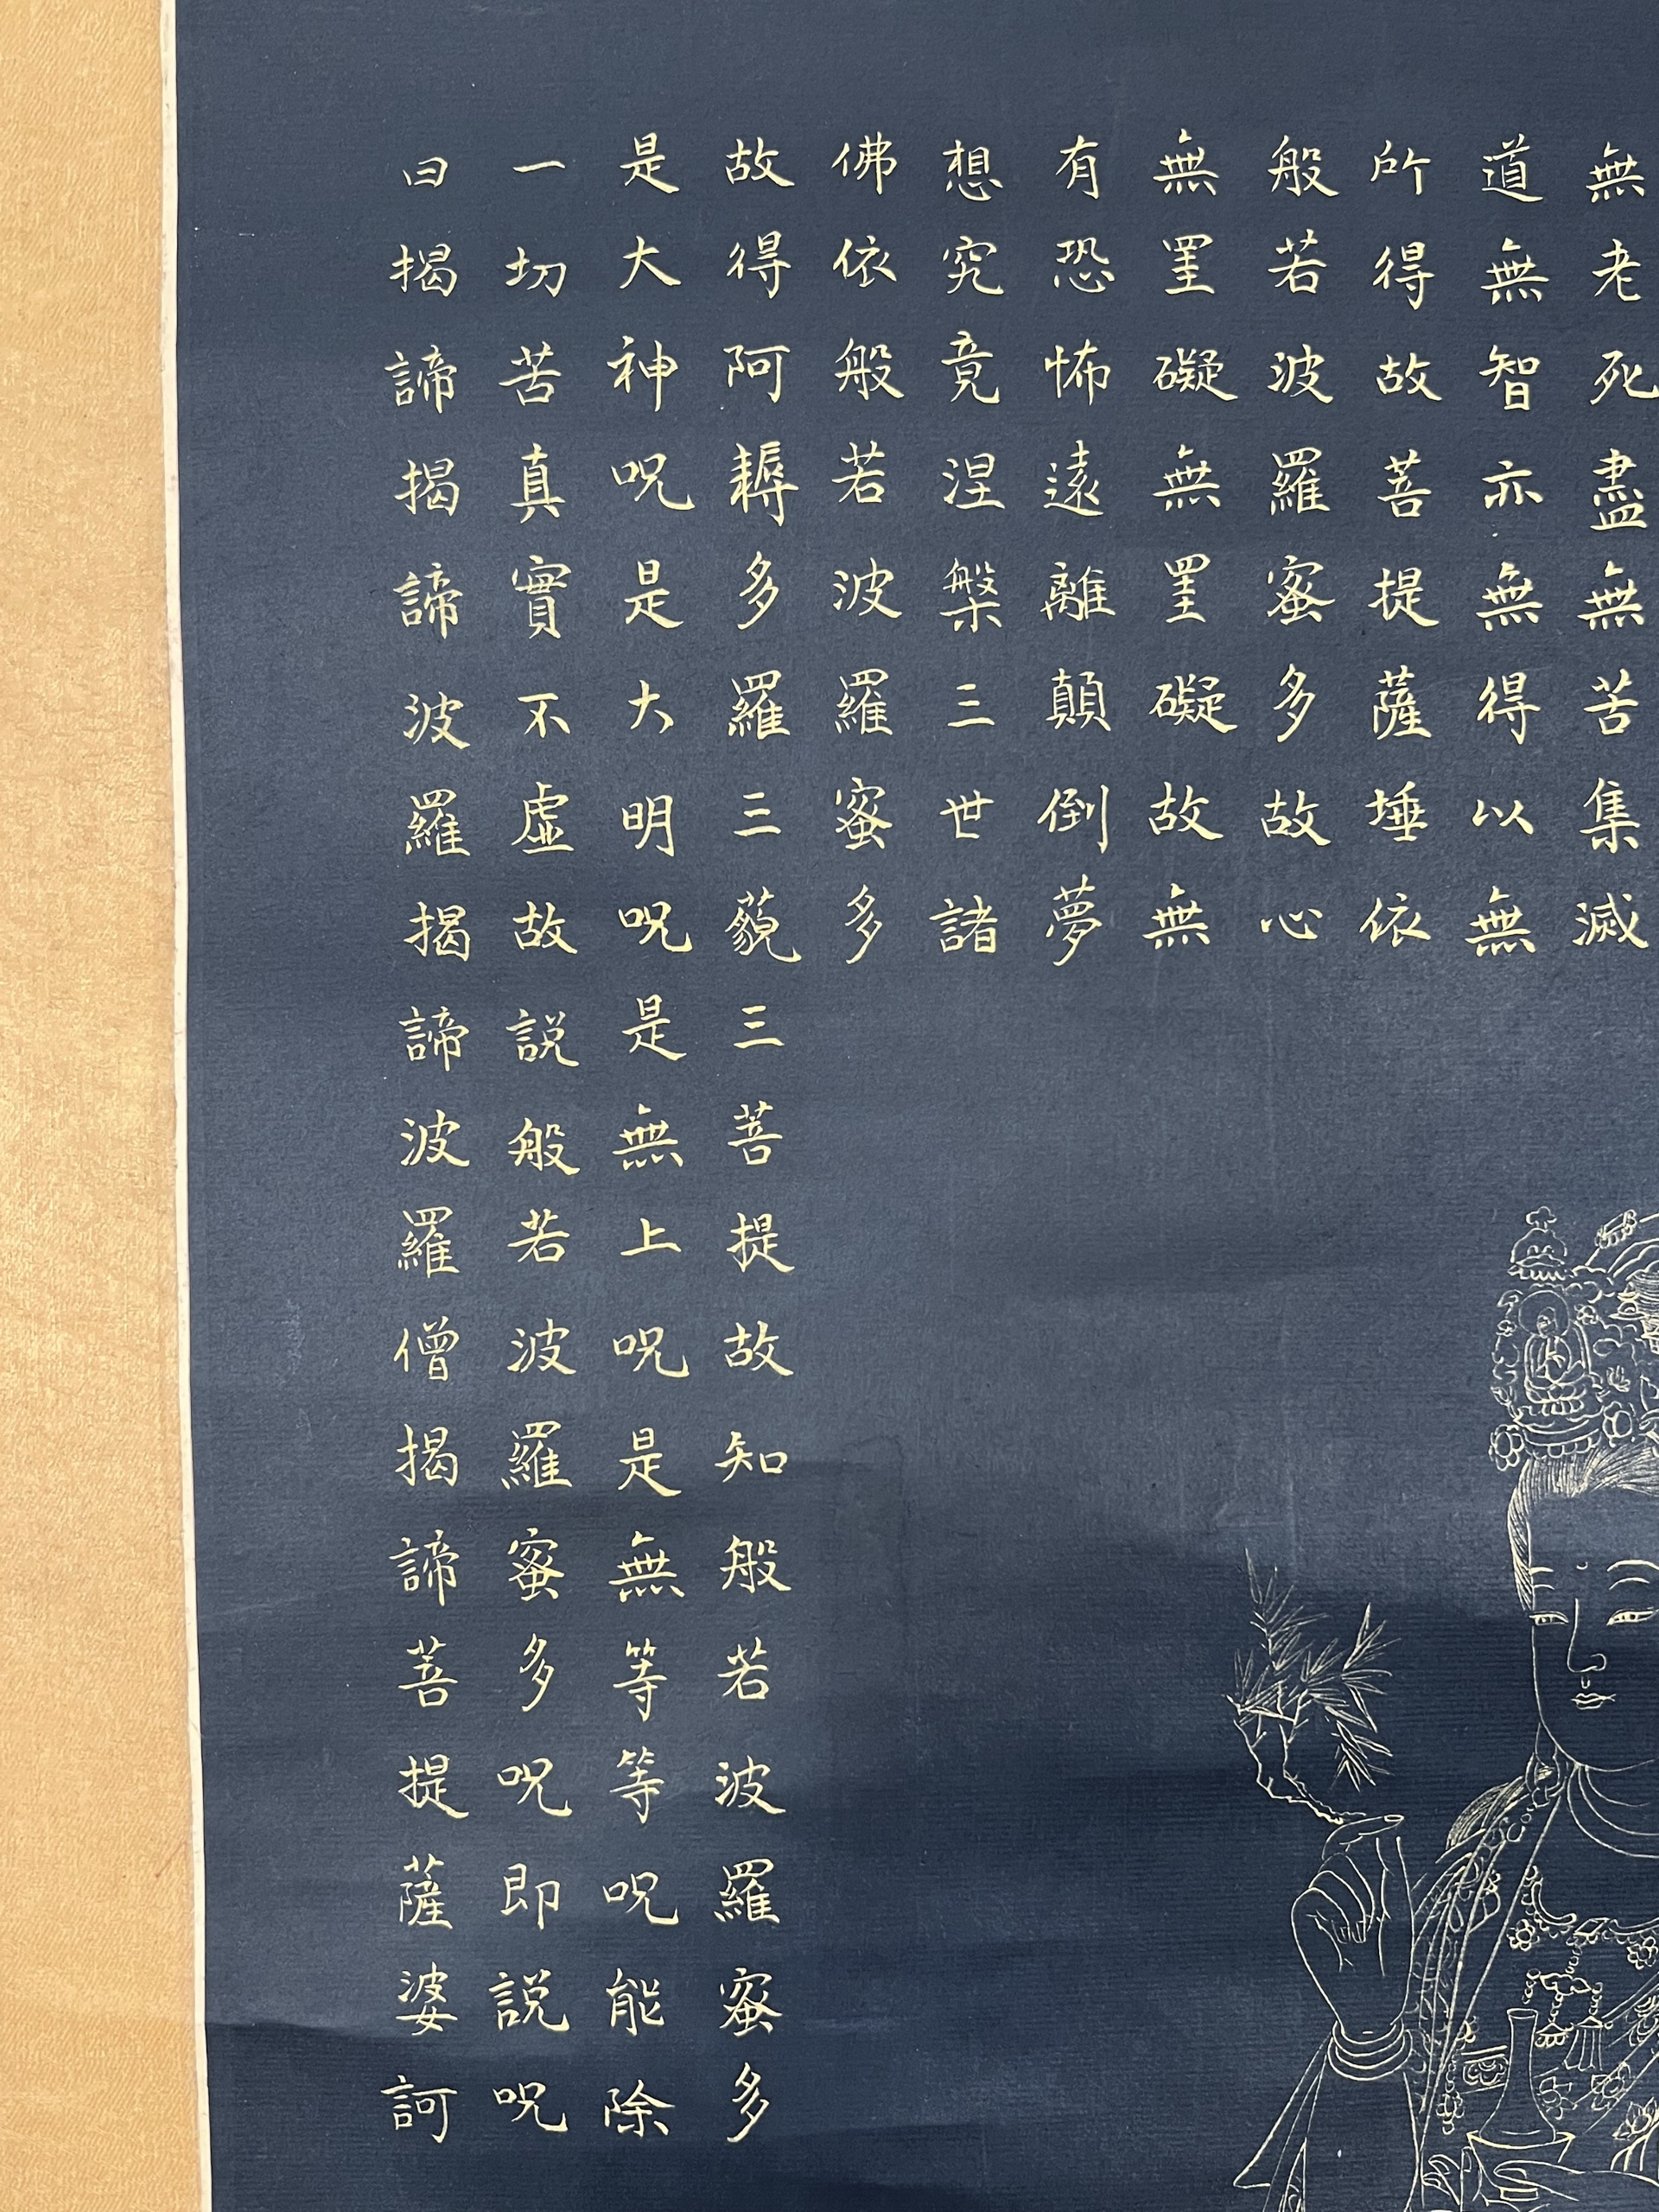 無老死盡無苦集滅
道無智亦無得以無
所得故菩提薩埵依
般若波羅蜜多故心
無罣礙無罣礙故無
有恐怖遠離顛倒夢
想究竟涅槃三世諸
佛依般若波羅蜜多
故得阿耨多羅三藐三菩提故知般若波羅蜜多
是大神呪是大明呪是無上呪是無等等呪能除
一切苦真實不虛故説般若波羅蜜多呪即説呪
曰揭諦揭諦波羅揭諦波羅僧揭諦菩提薩婆訶